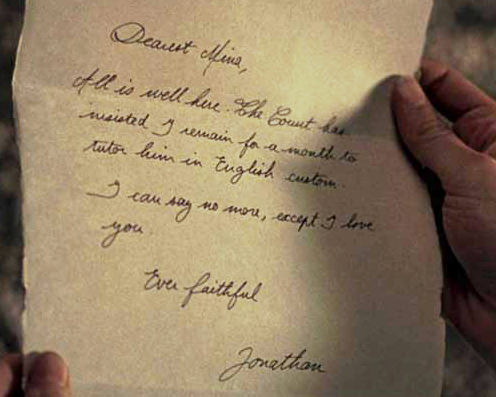 Dearest Mina,
All is well here. The Count has
insisted I remain for a month to
tutor him in English custom.
I can say no more, except I love
you
Ever faithful
Jonathan